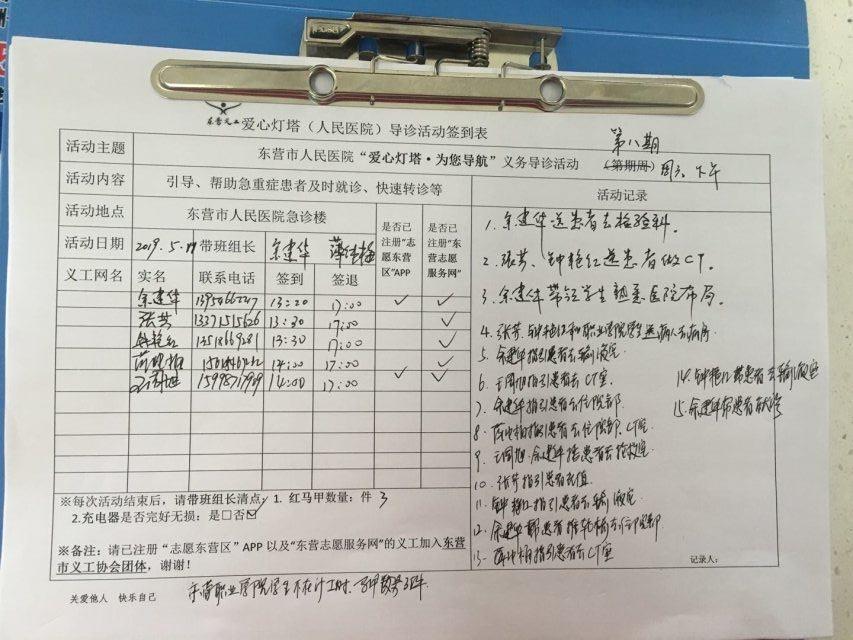 东营义工 爱心灯塔（人民医院）导诊活动签到表
第八期
活动主题 东营市人民医院“爱心灯塔·为您导航”义务导诊活动 （第期周） 周三下午
活动内容 引导、帮助急重症患者及时就诊、快速转诊等 活动记录
活动地点 东营市人民医院急诊楼 是否已注册“志愿东营区”APP 是否已注册“东营志愿服务网”
活动日期 2019.5. 带班组长 余建华
义工网名 实名 联系电话 签到 签退
余建华 13:20 17:00 ✓ ✓
张芳 13371515626 13:30 17:00 ✓
钟艳红 13:30 17:00 ✓
14:00 17:00 ✓
14:00 17:00 ✓ ✓
1. 余建华送患者去检验科.
2. 张芳、钟艳红送患者做CT.
3. 余建华带领学生熟悉医院布局.
4. 张芳、钟艳红和职业学院学生送病人去病房
5. 余建华指引患者去输液室
6. 指引患者去CT室
7. 余建华指引患者去住院部
8. 指引患者去住院部、CT室
9. 余建华 患者去抢救室
10. 张芳指引患者充值
11. 钟艳红指引患者去输液室
12. 余建华帮患者推轮椅去住院部
13. 指引患者去CT室
14. 钟艳红带患者去输液室
15. 余建华带患者
※每次活动结束后，请带班组长清点：1. 红马甲数量：件 3
2.充电器是否完好无损：是□否☑
※备注：请已注册“志愿东营区”APP 以及“东营志愿服务网”的义工加入东营
市义工协会团体，谢谢！
记录人：
关爱他人 快乐自己
东营职业学院学生不在计工时.